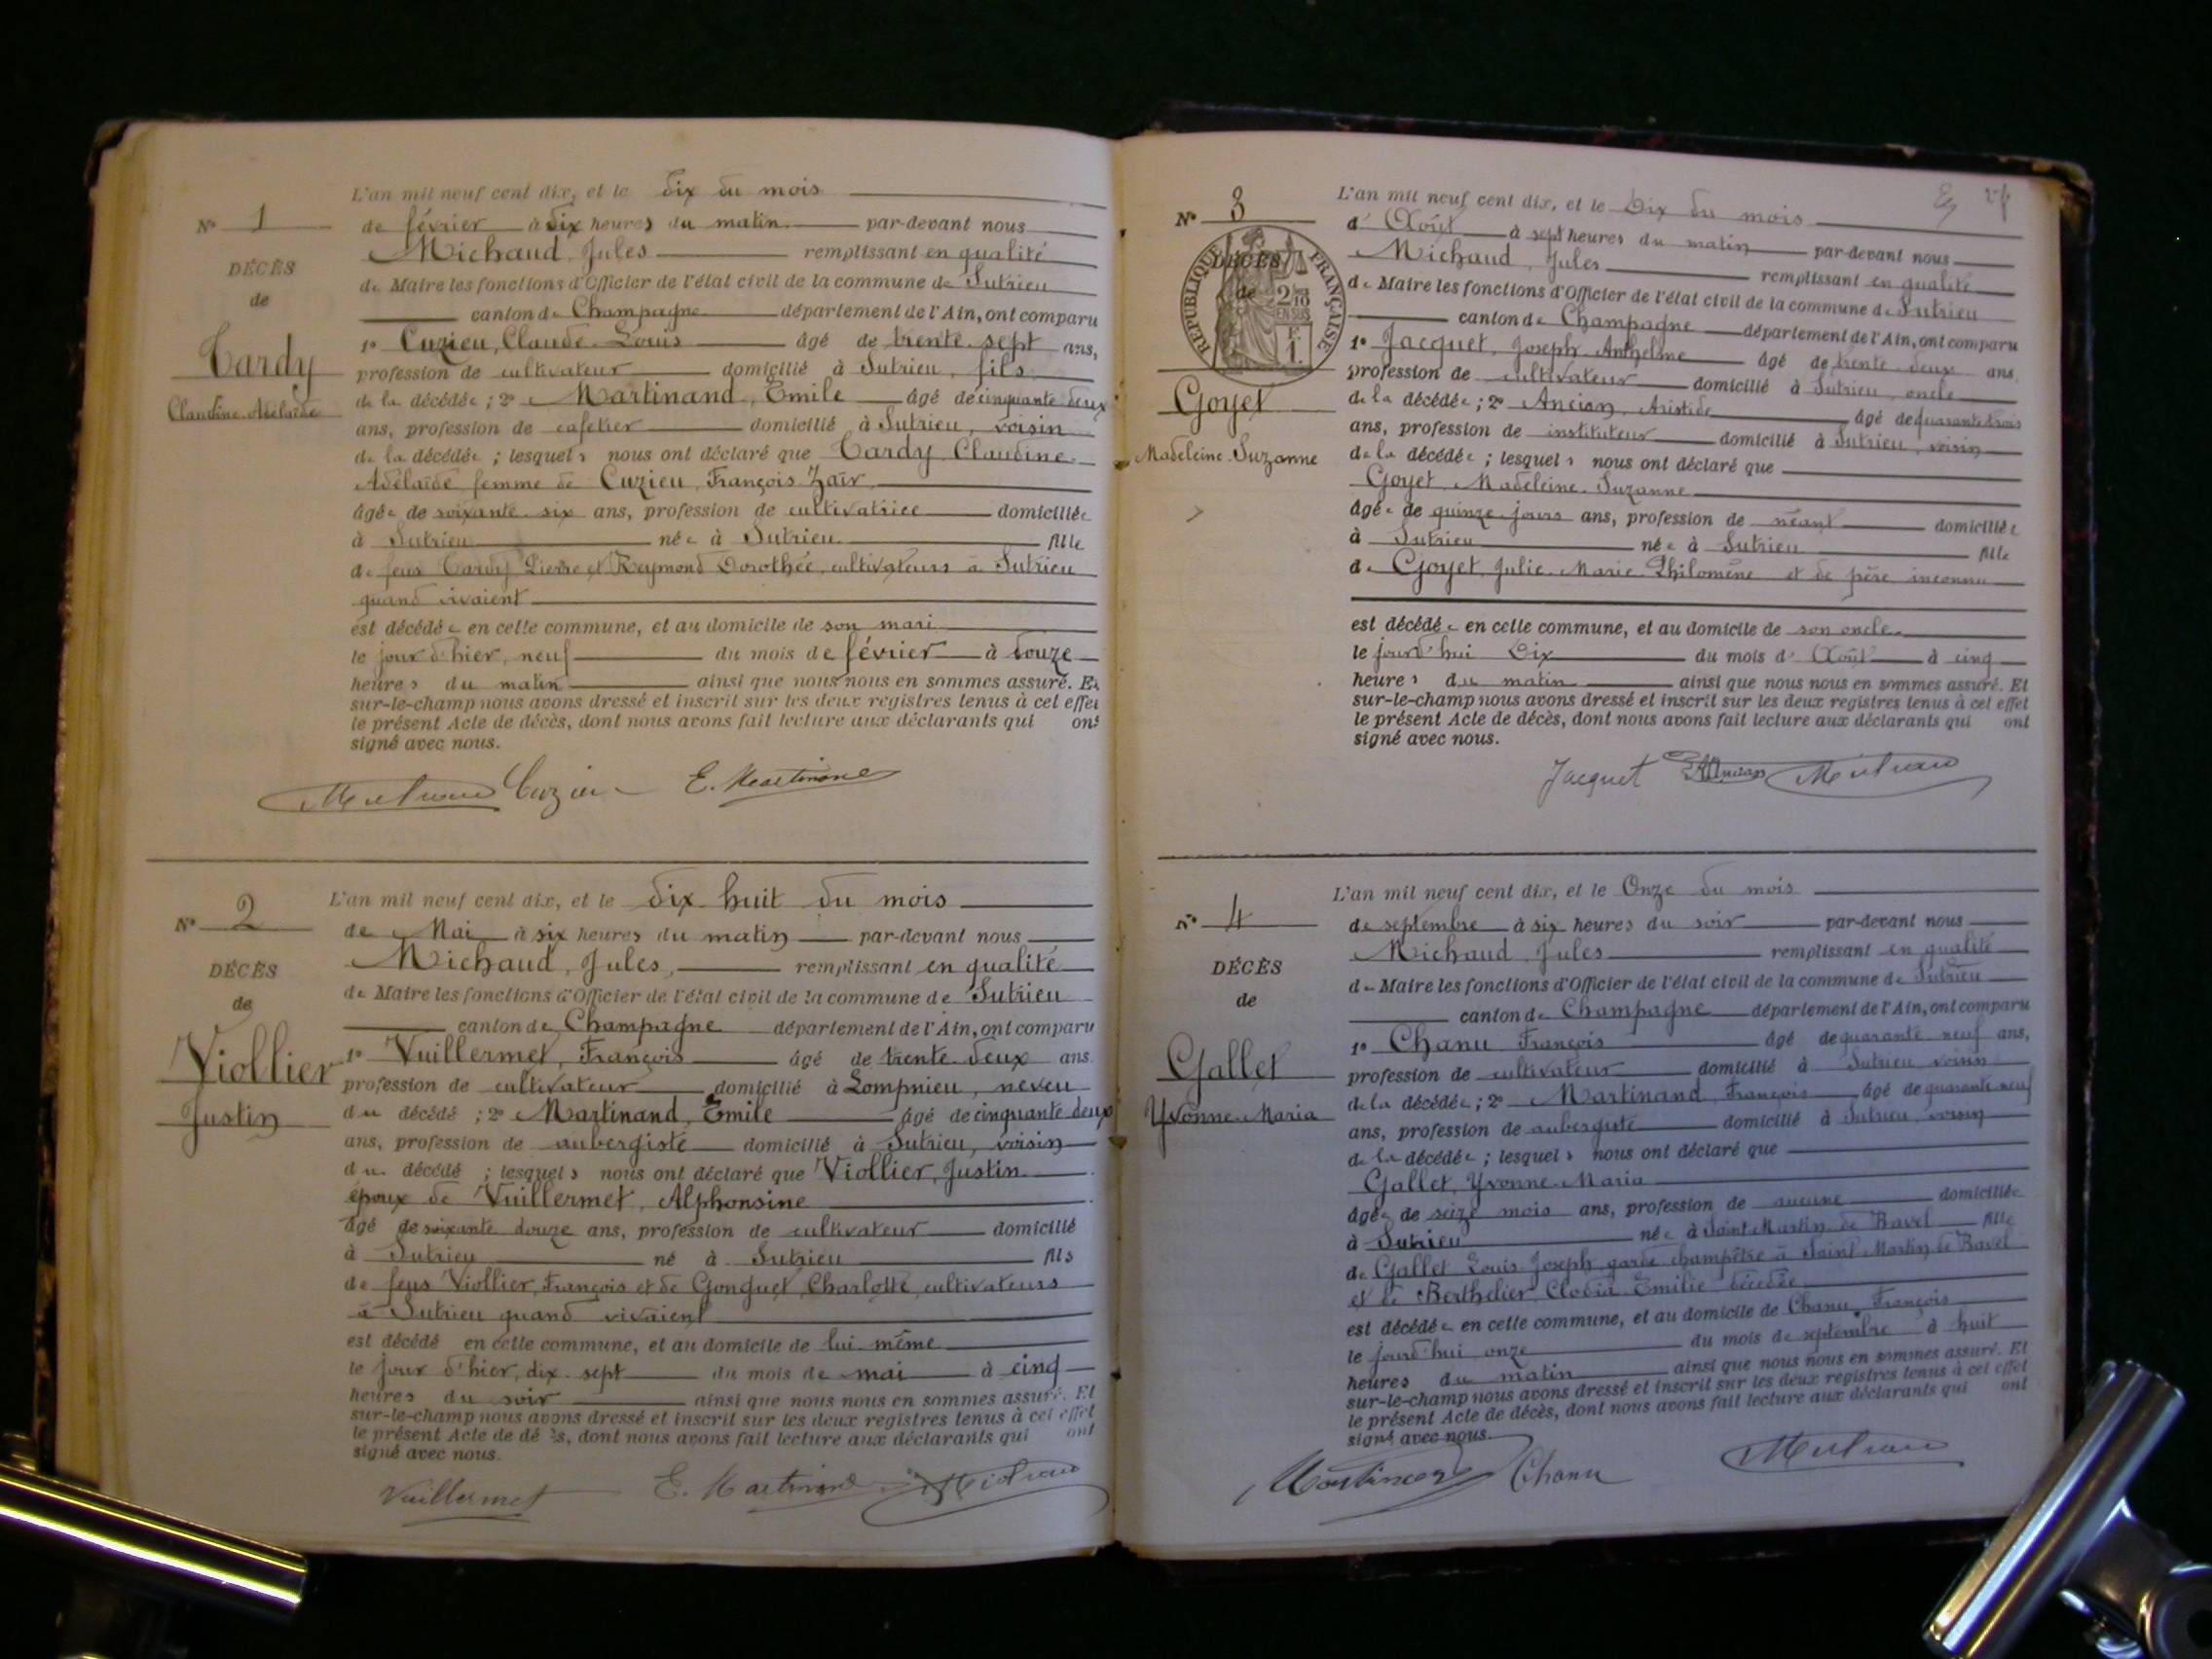 L'an mil neuf cent dix, et le dix du mois
N° 1
de février à dix heures du matin par-devant nous
Michaud, Jules remplissant en qualité
DÉCÈS
de Maire les fonctions d'Officier de l'état civil de la commune de Sutrieu
de
canton de Champagne département de l'Ain, ont comparu
Tardy
1° Cuzieu, Claude Louis âgé de trente sept ans,
profession de cultivateur domicilié à Sutrieu, fils
Claudine Adélaïde
de la décédée ; 2° Martinand, Emile âgé de cinquante deux
ans, profession de cafetier domicilié à Sutrieu, voisin
de la décédée ; lesquels nous ont déclaré que Tardy Claudine
Adélaïde femme de Cuzieu, François Zaïr
âgée de soixante six ans, profession de cultivatrice domiciliée
à Sutrieu née à Sutrieu fille
de feus Tardy Pierre et Reymond Dorothée, cultivateurs à Sutrieu
quand vivaient
est décédée en cette commune, et au domicile de son mari
le jour d'hier, neuf du mois de février à douze
heures du matin ainsi que nous nous en sommes assuré. Et
sur-le-champ nous avons dressé et inscrit sur les deux registres tenus à cet effet
le présent Acte de décès, dont nous avons fait lecture aux déclarants qui ont
signé avec nous.
Cuzieu E. Martinand
L'an mil neuf cent dix, et le dix huit du mois
N° 2
de Mai à six heures du matin par-devant nous
Michaud, Jules, remplissant en qualité
DÉCÈS
de Maire les fonctions d'Officier de l'état civil de la commune de Sutrieu
de
canton de Champagne département de l'Ain, ont comparu
Viollier
1° Vuillermet, François âgé de trente deux ans
profession de cultivateur domicilié à Lompnieu, neveu
Justin
du décédé ; 2° Martinand, Emile âgé de cinquante deux
ans, profession de aubergiste domicilié à Sutrieu, voisin
du décédé ; lesquels nous ont déclaré que Viollier, Justin
époux de Vuillermet, Alphonsine
âgé de soixante douze ans, profession de cultivateur domicilié
à Sutrieu né à Sutrieu fils
de feus Viollier, François et de Gonguet, Charlotte, cultivateurs
à Sutrieu quand vivaient
est décédé en cette commune, et au domicile de lui même
le jour d'hier, dix sept du mois de mai à cinq
heures du soir ainsi que nous nous en sommes assuré. Et
sur-le-champ nous avons dressé et inscrit sur les deux registres tenus à cet effet
le présent Acte de décès, dont nous avons fait lecture aux déclarants qui ont
signé avec nous.
Vuillermet E. Martinand
L'an mil neuf cent dix, et le Dix du mois
N° 3
d' Août à sept heures du matin par-devant nous
Michaud, Jules remplissant en qualité
DÉCÈS
RÉPUBLIQUE FRANÇAISE
2/10 EN SUS
F. 1.
de Maire les fonctions d'Officier de l'état civil de la commune de Sutrieu
de
canton de Champagne département de l'Ain, ont comparu
1° Jacquet, Joseph Anthelme âgé de trente deux ans,
profession de cultivateur domicilié à Sutrieu, oncle
Goyet
de la décédée ; 2° Ancian, Aristide âgé de quarante trois
ans, profession de instituteur domicilié à Sutrieu, voisin
Madeleine Suzanne
de la décédée ; lesquels nous ont déclaré que
Goyet, Madeleine Suzanne
âgée de quinze jours ans, profession de néant domiciliée
à Sutrieu née à Sutrieu fille
de Goyet, Julie Marie Philomène et de père inconnu
est décédée en cette commune, et au domicile de son oncle
le jourd'hui Dix du mois d' Août à cinq
heures du matin ainsi que nous nous en sommes assuré. Et
sur-le-champ nous avons dressé et inscrit sur les deux registres tenus à cet effet
le présent Acte de décès, dont nous avons fait lecture aux déclarants qui ont
signé avec nous.
Jacquet Ancian
L'an mil neuf cent dix, et le Onze du mois
N° 4
de septembre à six heures du soir par-devant nous
Michaud, Jules remplissant en qualité
DÉCÈS
de Maire les fonctions d'Officier de l'état civil de la commune de Sutrieu
de
canton de Champagne département de l'Ain, ont comparu
Gallet
1° Chanu François âgé de quarante neuf ans,
profession de cultivateur domicilié à Sutrieu voisin
Yvonne Maria
de la décédée ; 2° Martinand, François âgé de quarante neuf
ans, profession de aubergiste domicilié à Sutrieu, voisin
de la décédée ; lesquels nous ont déclaré que
Gallet, Yvonne Maria
âgée de seize mois ans, profession de aucune domiciliée
à Sutrieu née à Saint Martin de Bavel fille
de Gallet Louis Joseph garde champêtre à Saint Martin de Bavel
et de Berthelier Clodia Emilie décédée
est décédée en cette commune, et au domicile de Chanu, François
le jourd'hui onze du mois de septembre à huit
heures du matin ainsi que nous nous en sommes assuré. Et
sur-le-champ nous avons dressé et inscrit sur les deux registres tenus à cet effet
le présent Acte de décès, dont nous avons fait lecture aux déclarants qui ont
signé avec nous.
Chanu